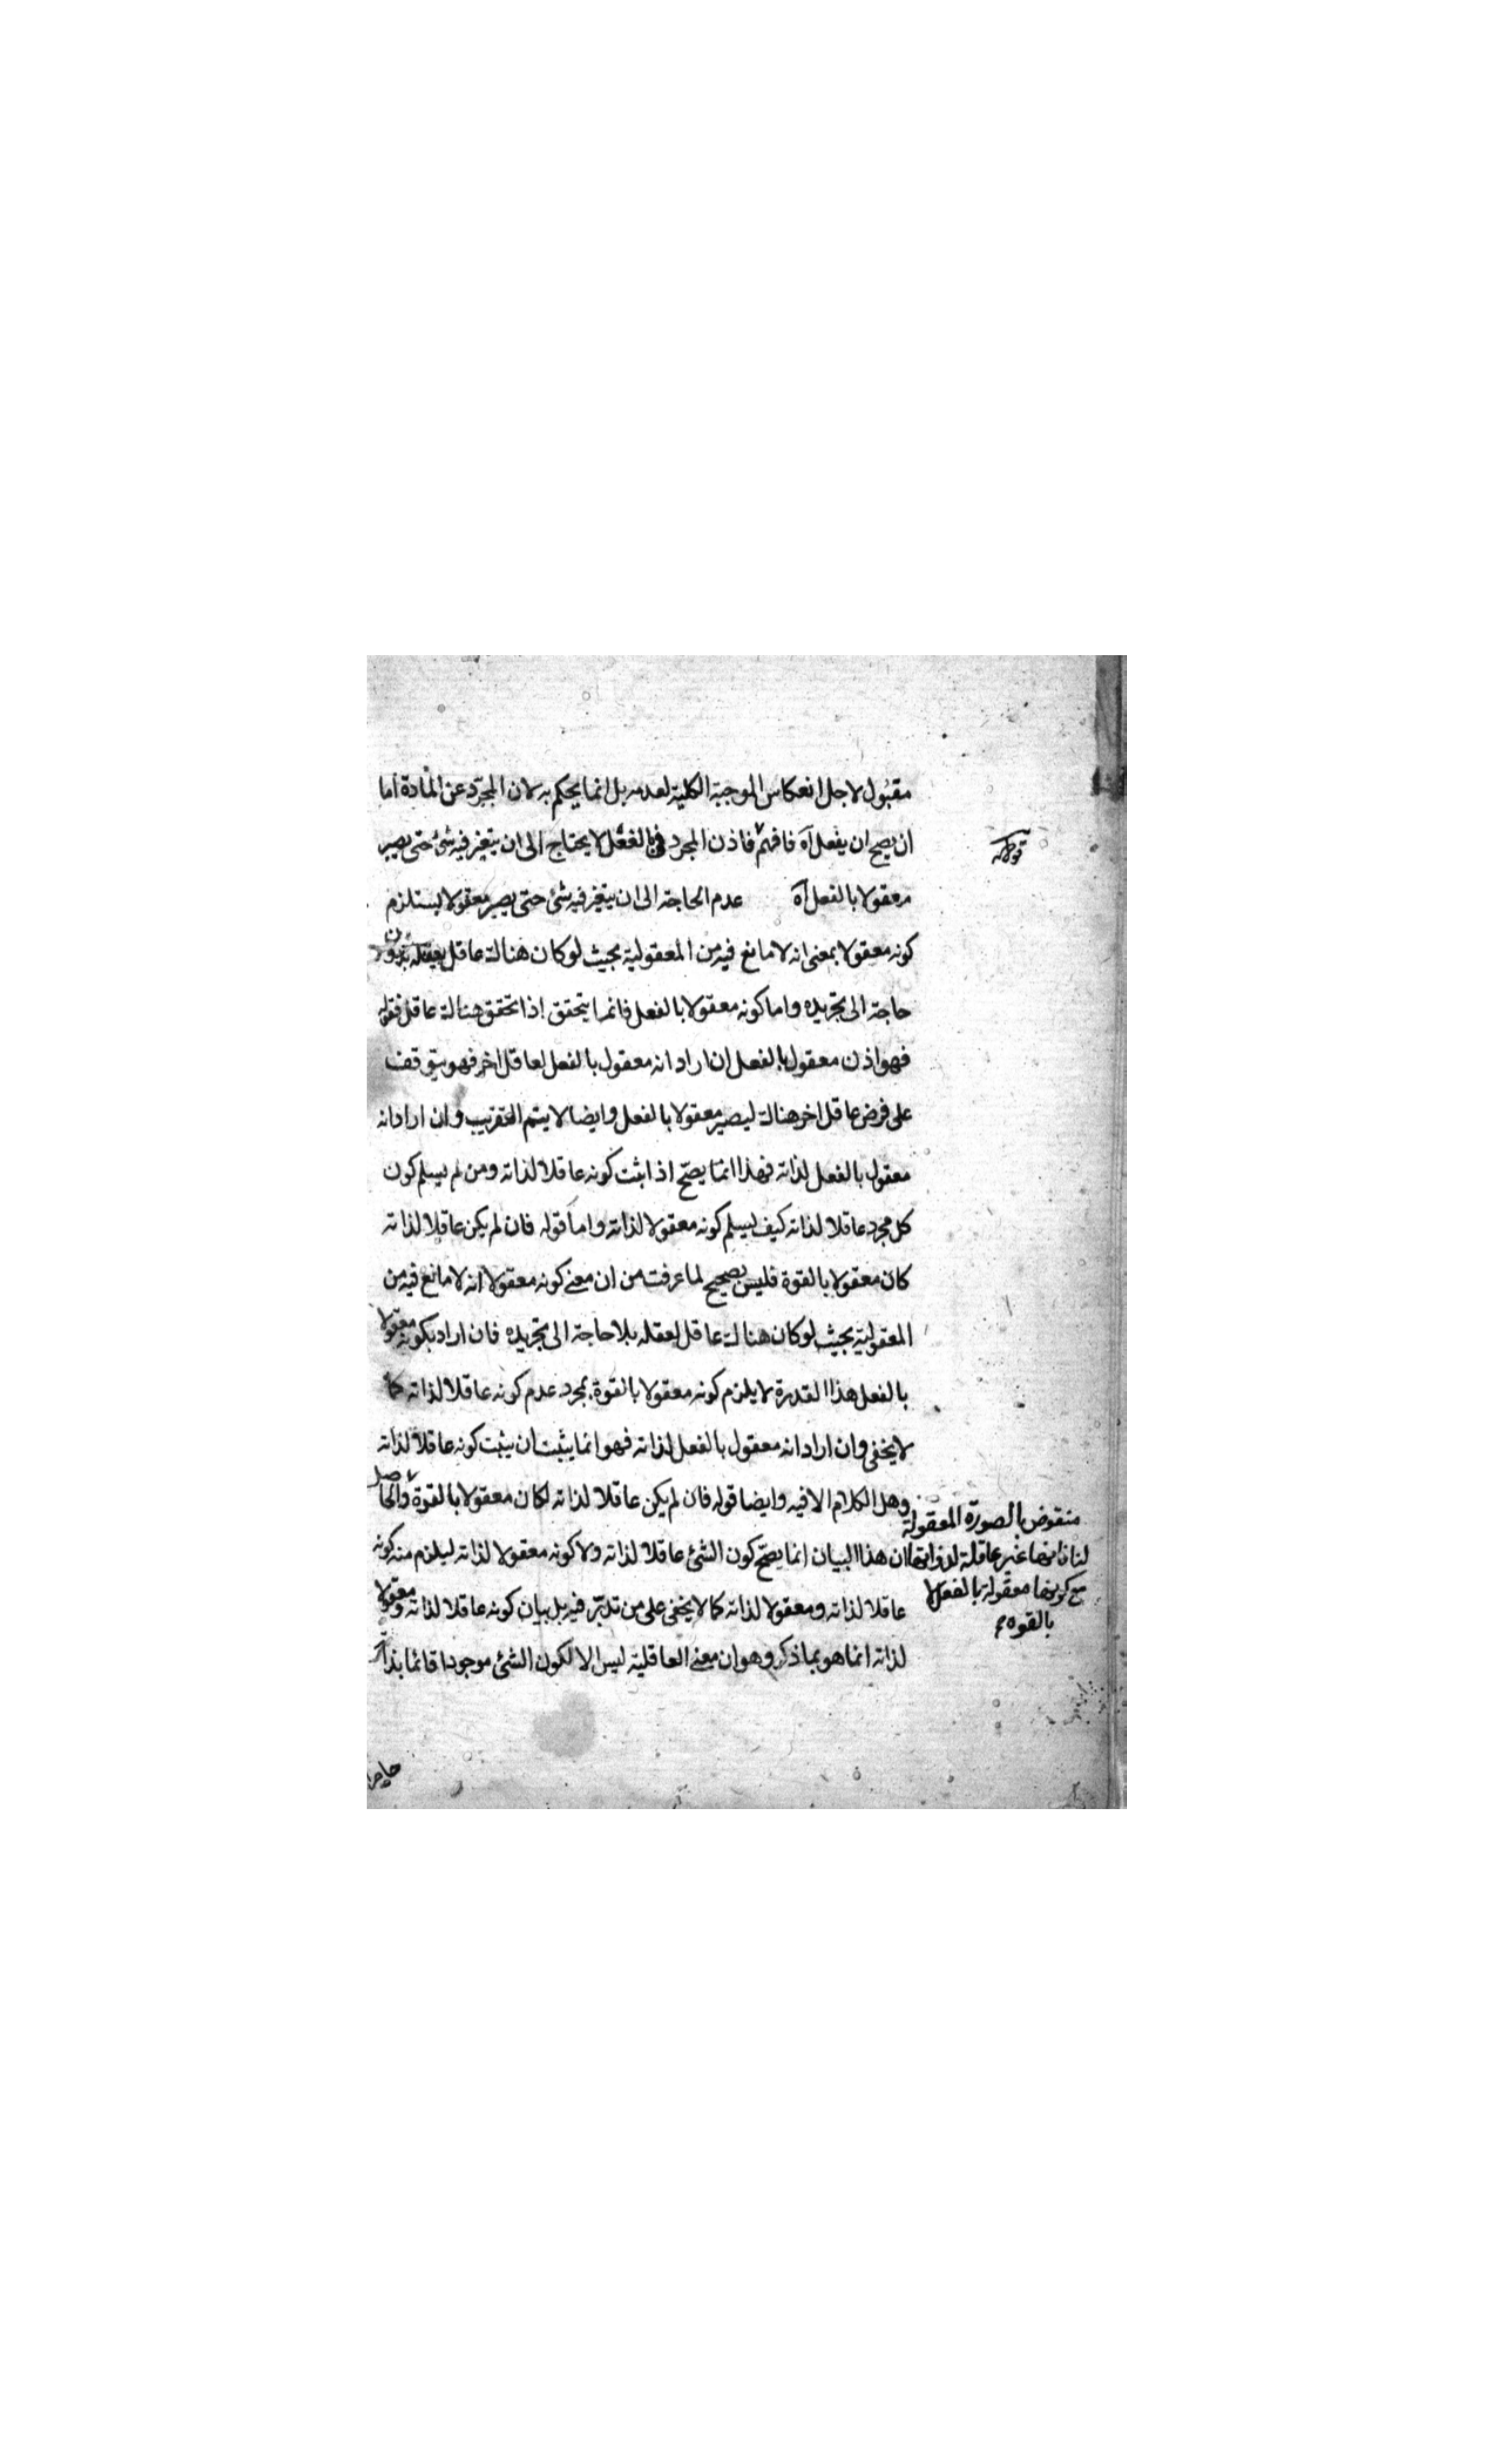 مقبول لاجل انعكاس الموجبة الكلية لعدمه بل انما يحكم به لان المجرد عن المادة اما
ان يصح ان يفعل آه فافهم فاذن المجرد بالفعل لا يحتاج الى ان يتغير فيه شئ حتى يصير
قوله
معقولا بالفعل آه عدم الحاجة الى ان يتغير فيه شئ حتى يصير معقولا يستلزم
كونه معقولا بمعنى انه لا مانع فيه من المعقولية بحيث لو كان هناك عاقل يعقله بدون
حاجة الى تجريده واما كونه معقولا بالفعل فانما يتحقق اذا تحقق هناك عاقل فقوله
فهو اذن معقول بالفعل ان اراد انه معقول بالفعل لعاقل اخر فهو يتوقف
على فرض عاقل اخر هناك ليصير معقولا بالفعل وايضا لا يتم التقريب وان اراد انه
معقول بالفعل لذاته فهذا انما يصح اذا ثبت كونه عاقلا لذاته ومن لم يسلم كون
كل مجرد عاقلا لذاته كيف يسلم كونه معقولا لذاته واما قوله فان لم يكن عاقلا لذاته
كان معقولا بالقوة فليس بصحيح لما عرفت من ان معنى كونه معقولا انه لا مانع فيه من
المعقولية بحيث لو كان هناك عاقل لعقله بلا حاجة الى تجريده فان اراد بكونه معقولا
بالفعل هذا القدرة لا يلزم كونه معقولا بالقوة بمجرد عدم كونه عاقلا لذاته كما
لا يخفى وان اراد انه معقول بالفعل لذاته فهو انما يثبت ان يثبت كونه عاقلا لذاته
وهل الكلام الا فيه وايضا قوله فان لم يكن عاقلا لذاته لكان معقولا بالقوة والحاصل
منقوض بالصورة المعقولة
لنا فانها غير عاقلة لذواتها
مع كونها معقولة بالفعل لا
بالقوه
ان هذا البيان انما يصح كون الشئ عاقلا لذاته ولا كونه معقولا لذاته ليلزم منه كونه
عاقلا لذاته ومعقولا لذاته كما لا يخفى على من تدبر فيه بل بيان كونه عاقلا لذاته ومعقولا
لذاته انما هو بما ذكر وهو ان معنى العاقلية ليس الا لكون الشئ موجودا قائما بذاته